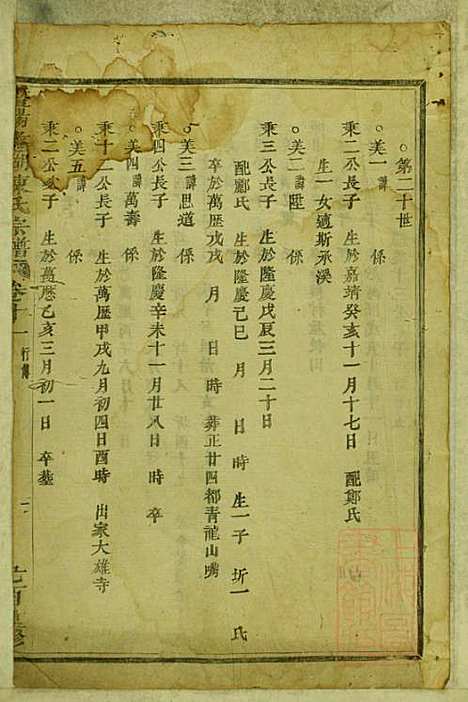 ○第二十世
○美一諱　係
乘二公長子　生於嘉靖癸亥十一月十七日　配鄭氏
生一女適斯承溪
○美二諱陞　係
乘三公長子　生於隆慶戊辰三月二十日
配酈氏　生於隆慶己巳　月　日　時　生一子　圻一　氏
卒於萬歷戊戌　月　日　時　葬正廿四都靑龍山嘴
○美三諱思道　係
乘四公長子　生於隆慶辛未十一月廿八日　時　卒
○美四諱萬壽　係
乘十二公長子　生於萬歷甲戌九月初四日酉時　出家大雄寺
○美五諱　係
乘二公次子　生於萬歷乙亥三月初一日　卒葬
陳氏宗譜　卷十一　行傳